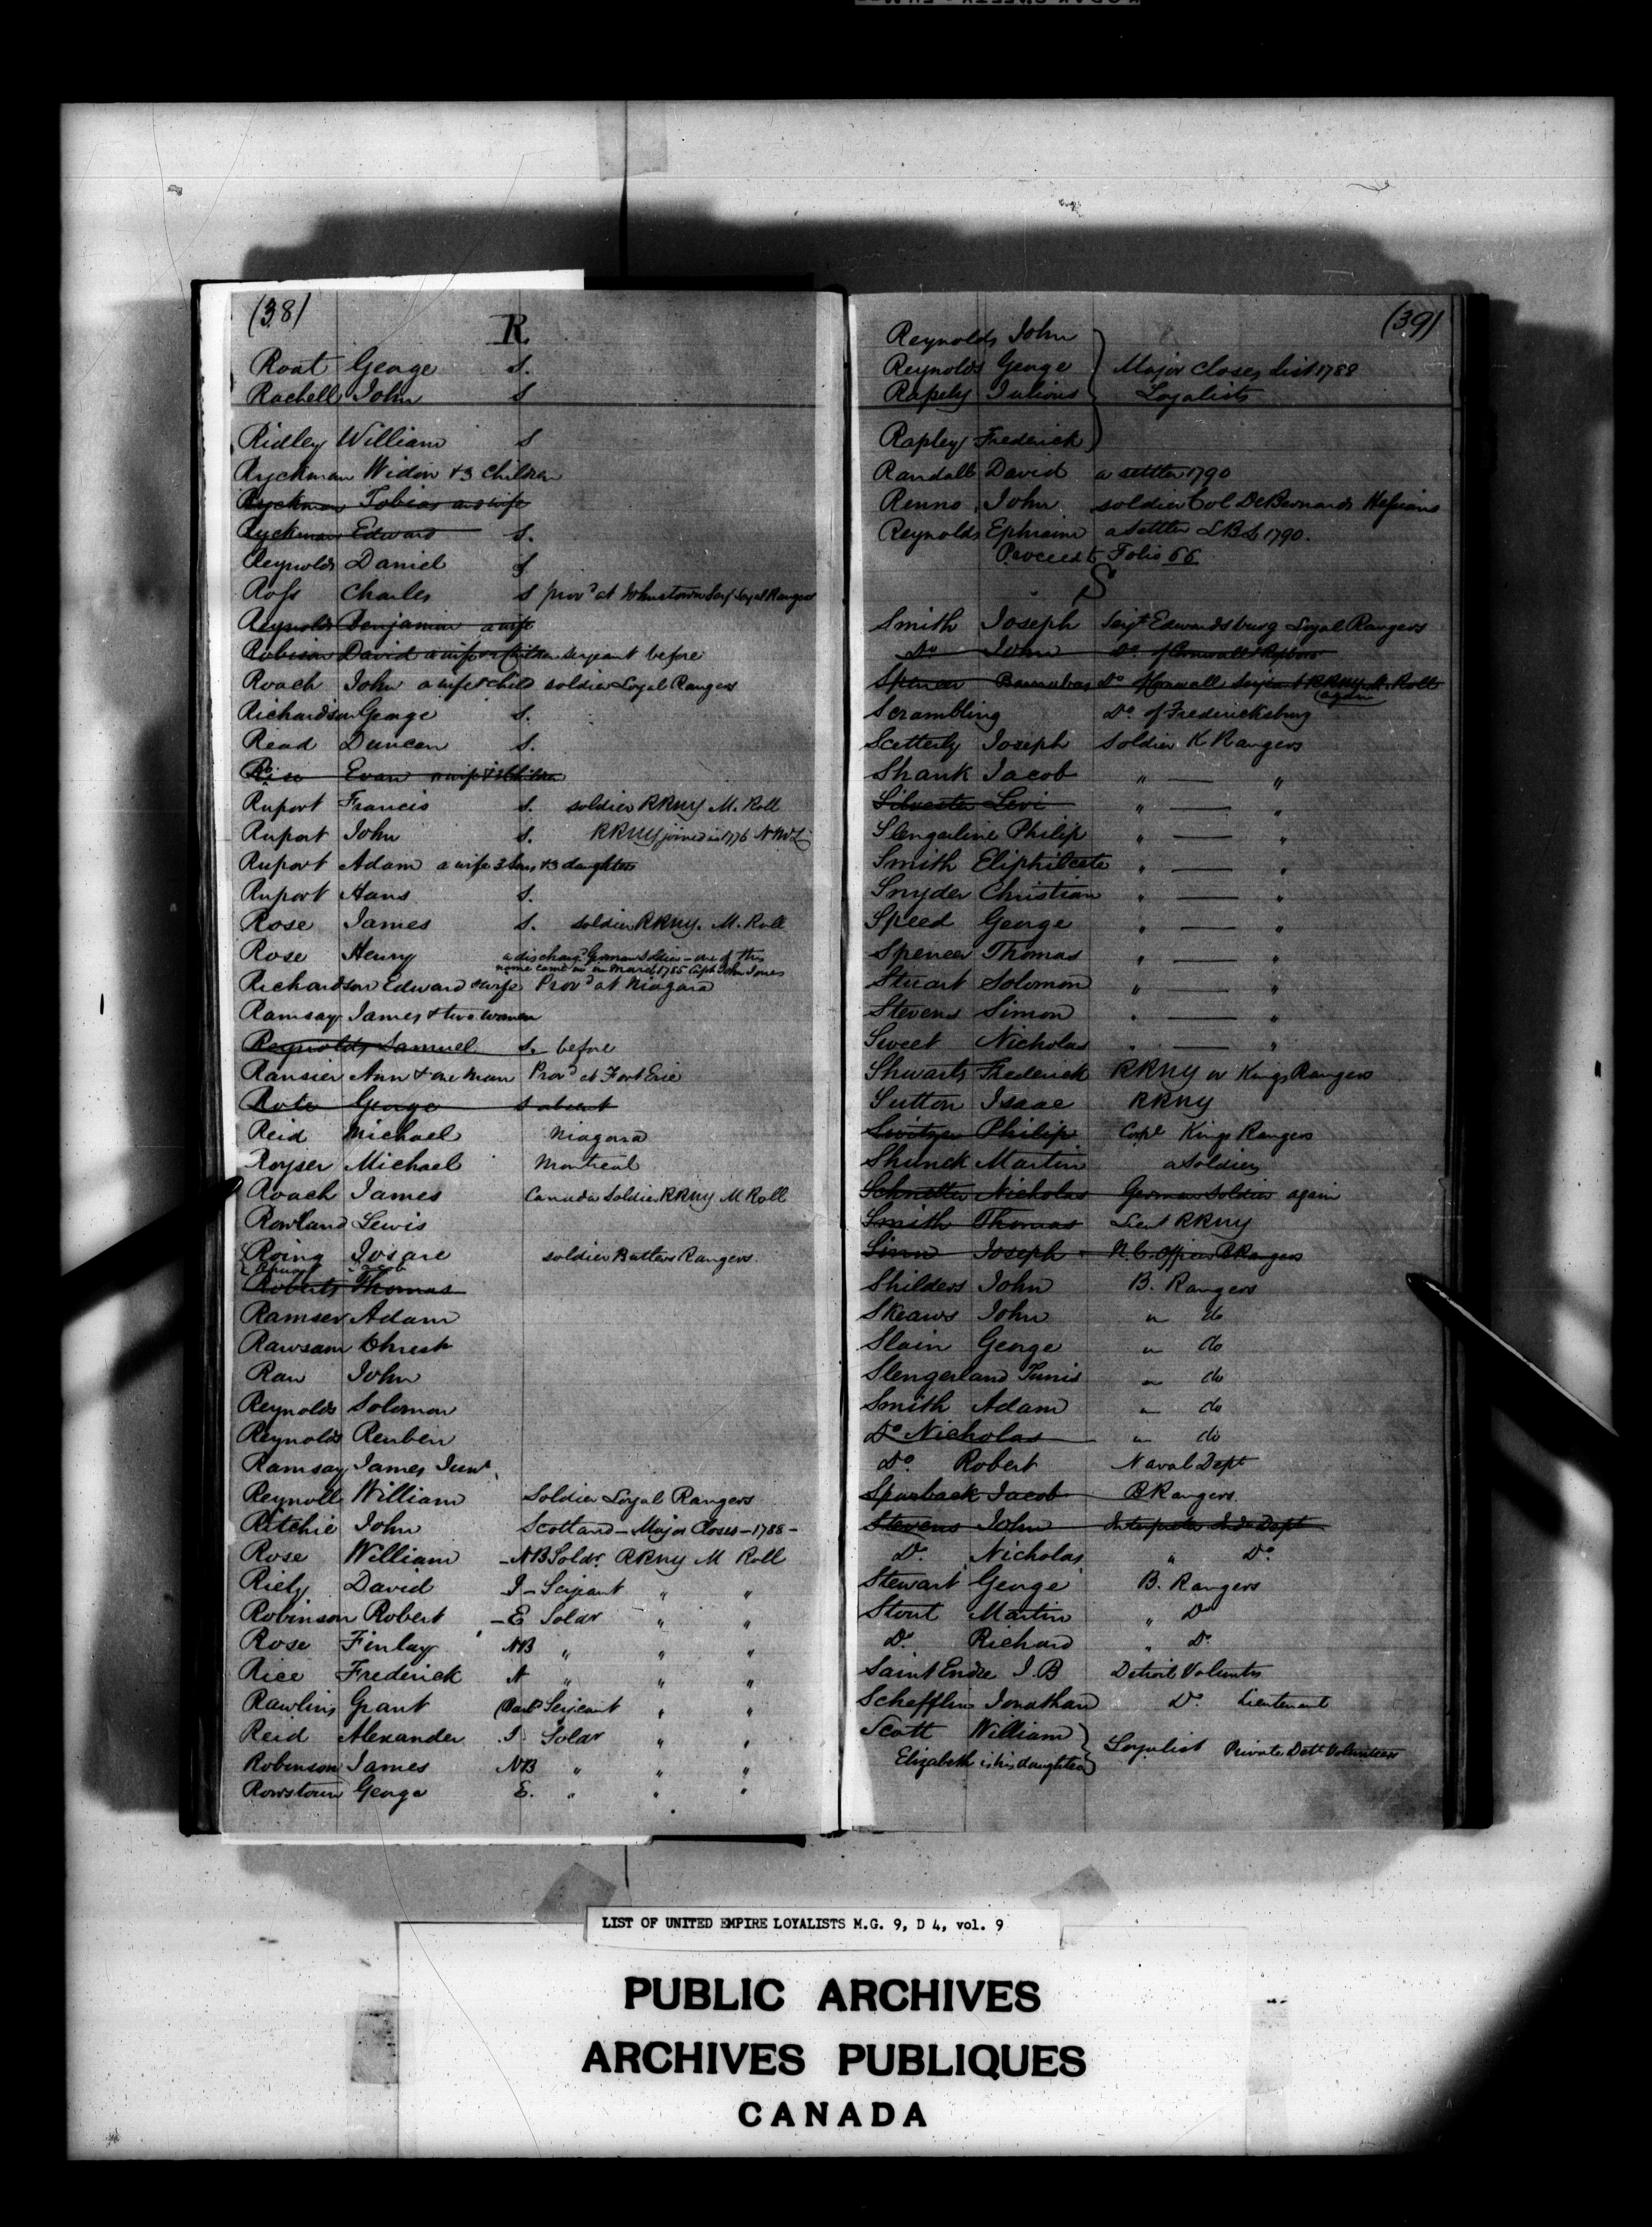 (38)
R
Root George S.
Rachell John S
Ridley William S
Ryckman Widow & 3 Children
Ryckman Tobias and wife
Ryckman Edward S.
Reynolds Daniel S
Ross Charles S prov'd at Johnstown Serj Loyal Rangers
Reynolds Benjamin a wife
Robison David a wife Children Serjeant before
Roach John a wife & child soldier Loyal Rangers
Richardson George S.
Read Duncan S.
Evan a wife & Children
Ruport Francis S. soldier RRNY M. Roll
Ruport John S. RRNY joined in 1776 NMZ
Ruport Adam a wife 3 Sons & 3 daughters
Ruport Hans S.
Rose James S. soldier RRNY. M. Roll
Rose Henry a discharg'd German Soldier – one of this
name came in in March 1785 Capt John Jones
Richardson Edward & wife Prov'd at Niagara
Ramsay James & two women
Reynolds Samuel S. before
Ransier Ann & one man Prov'd at Fort Erie
Rote George S absent
Reid Michael Niagara
Royser Michael Montreal
Roach James Canada Soldier RRNY M Roll
Rowland Lewis
Roing Josare soldier Butlers Rangers
Jacob
Roberts Thomas
Ramser Adam
Rawsam Christr
Raw John
Reynolds Solomon
Reynolds Reuben
Ramsay James Junr.
Reynoll William Soldier Loyal Rangers
Ritchie John Scotland – Major Closes – 1788 –
Rose William – NB Soldr. RRNY M Roll
Riely David I – Serjeant " "
Robinson Robert – E Soldr " "
Rose Finlay NB " " "
Rice Frederick A " " "
Rawlins Grant Serjeant " "
Reid Alexander I Soldr " "
Robinson James NB " " "
Rowstown George E. " " "
(39)
Reynolds John
Reynolds George Major Closes List 1788
Rapely Julious Loyalists
Rapley Frederick
Randall David a settler 1790
Renno John soldier Col De Barnards Hessians
Reynolds Ephraim a Settler LB 1790.
Proceed to Folio 66
S
Smith Joseph Serjt Edwardsburg Loyal Rangers
Do John Do of Cornwall
Spencer Barnabas Do of Cornwall RRNY M. Roll
again
Scrambling Do. of Fredericksburg
Scetterly Joseph Soldier K Rangers
Shank Jacob " — "
Silvester Levi " — "
Slengerline Philip " — "
Smith Eliphileete " — "
Snyder Christian " — "
Speed George " — "
Spencer Thomas " — "
Stuart Solomon " — "
Stevens Simon " — "
Sweet Nicholas " — "
Shwarts Frederick RRNY or Kings Rangers
Sutton Isaac RRNY
Switzer Philip Corpl Kings Rangers
Shunck Martin a Soldier
Schnetter Nicholas German Soldier again
Smith Thomas Lieut RRNY
Sinn Joseph N. C. Officer B Rangers
Shilders John B. Rangers
Skeaws John " do
Slain George " do
Slengerland Tunis " do
Smith Adam " do
Do Nicholas " do
Do. Robert Naval Dept
Sparback Jacob B Rangers
Stevens John Interpreter Ind Dept
Do. Nicholas " Do
Stewart George B. Rangers
Stout Martin " Do
Do. Richard " Do
Saint Endre I. B Detroit Volunters
Schefflin Jonathan Do. Lieutenant
Scott William Loyalist Private Dett Volunteers
Elizabeth is his daughter
LIST OF UNITED EMPIRE LOYALISTS M.G. 9, D 4, vol. 9
PUBLIC ARCHIVES
ARCHIVES PUBLIQUES
CANADA